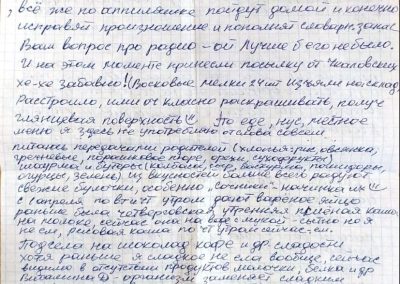 , всё же по аппиляшка пойдут домой и конечно
исправят произношение и пополнят словарн. запас
Вам вопрос про радио – ой лучше б его не было.
И на этом моменте принесли посылку от
хе-хе забавно! (Восковые мелки 24шт изъяли на склад
Расстроило, ими от классно раскрашивать, получ
глянцевая поверхность)" По еде, нус, местное
меню я здесь не употребляю от слова совсем
питаюсь передачами родителей (хлопья: рис, овсянка,
гречневые, порошковое пюре, орехи, сухофрукты)
и бутеры (колбаса, сыр, помидоры,
огурцы, зелень) Из вкусностей больше всего радуют
свежие булочки, особенно "сочник" начинка им"
с 1 апреля по вт и чт утром дают варёное яйцо
раньше была четверговская утренняя пшённая каша
на молоке, сейчас она на воде с мукой – сытно но я
не ем, рисовая каша по чт утром сейчас-ем.
Подсела на шоколад, кофе и др сладости
хотя раньше я сладкое не ела вообще, сейчас
видимо в отсутствии продуктов молочки, белка и др
Витамина Д – организм заменяет сладким